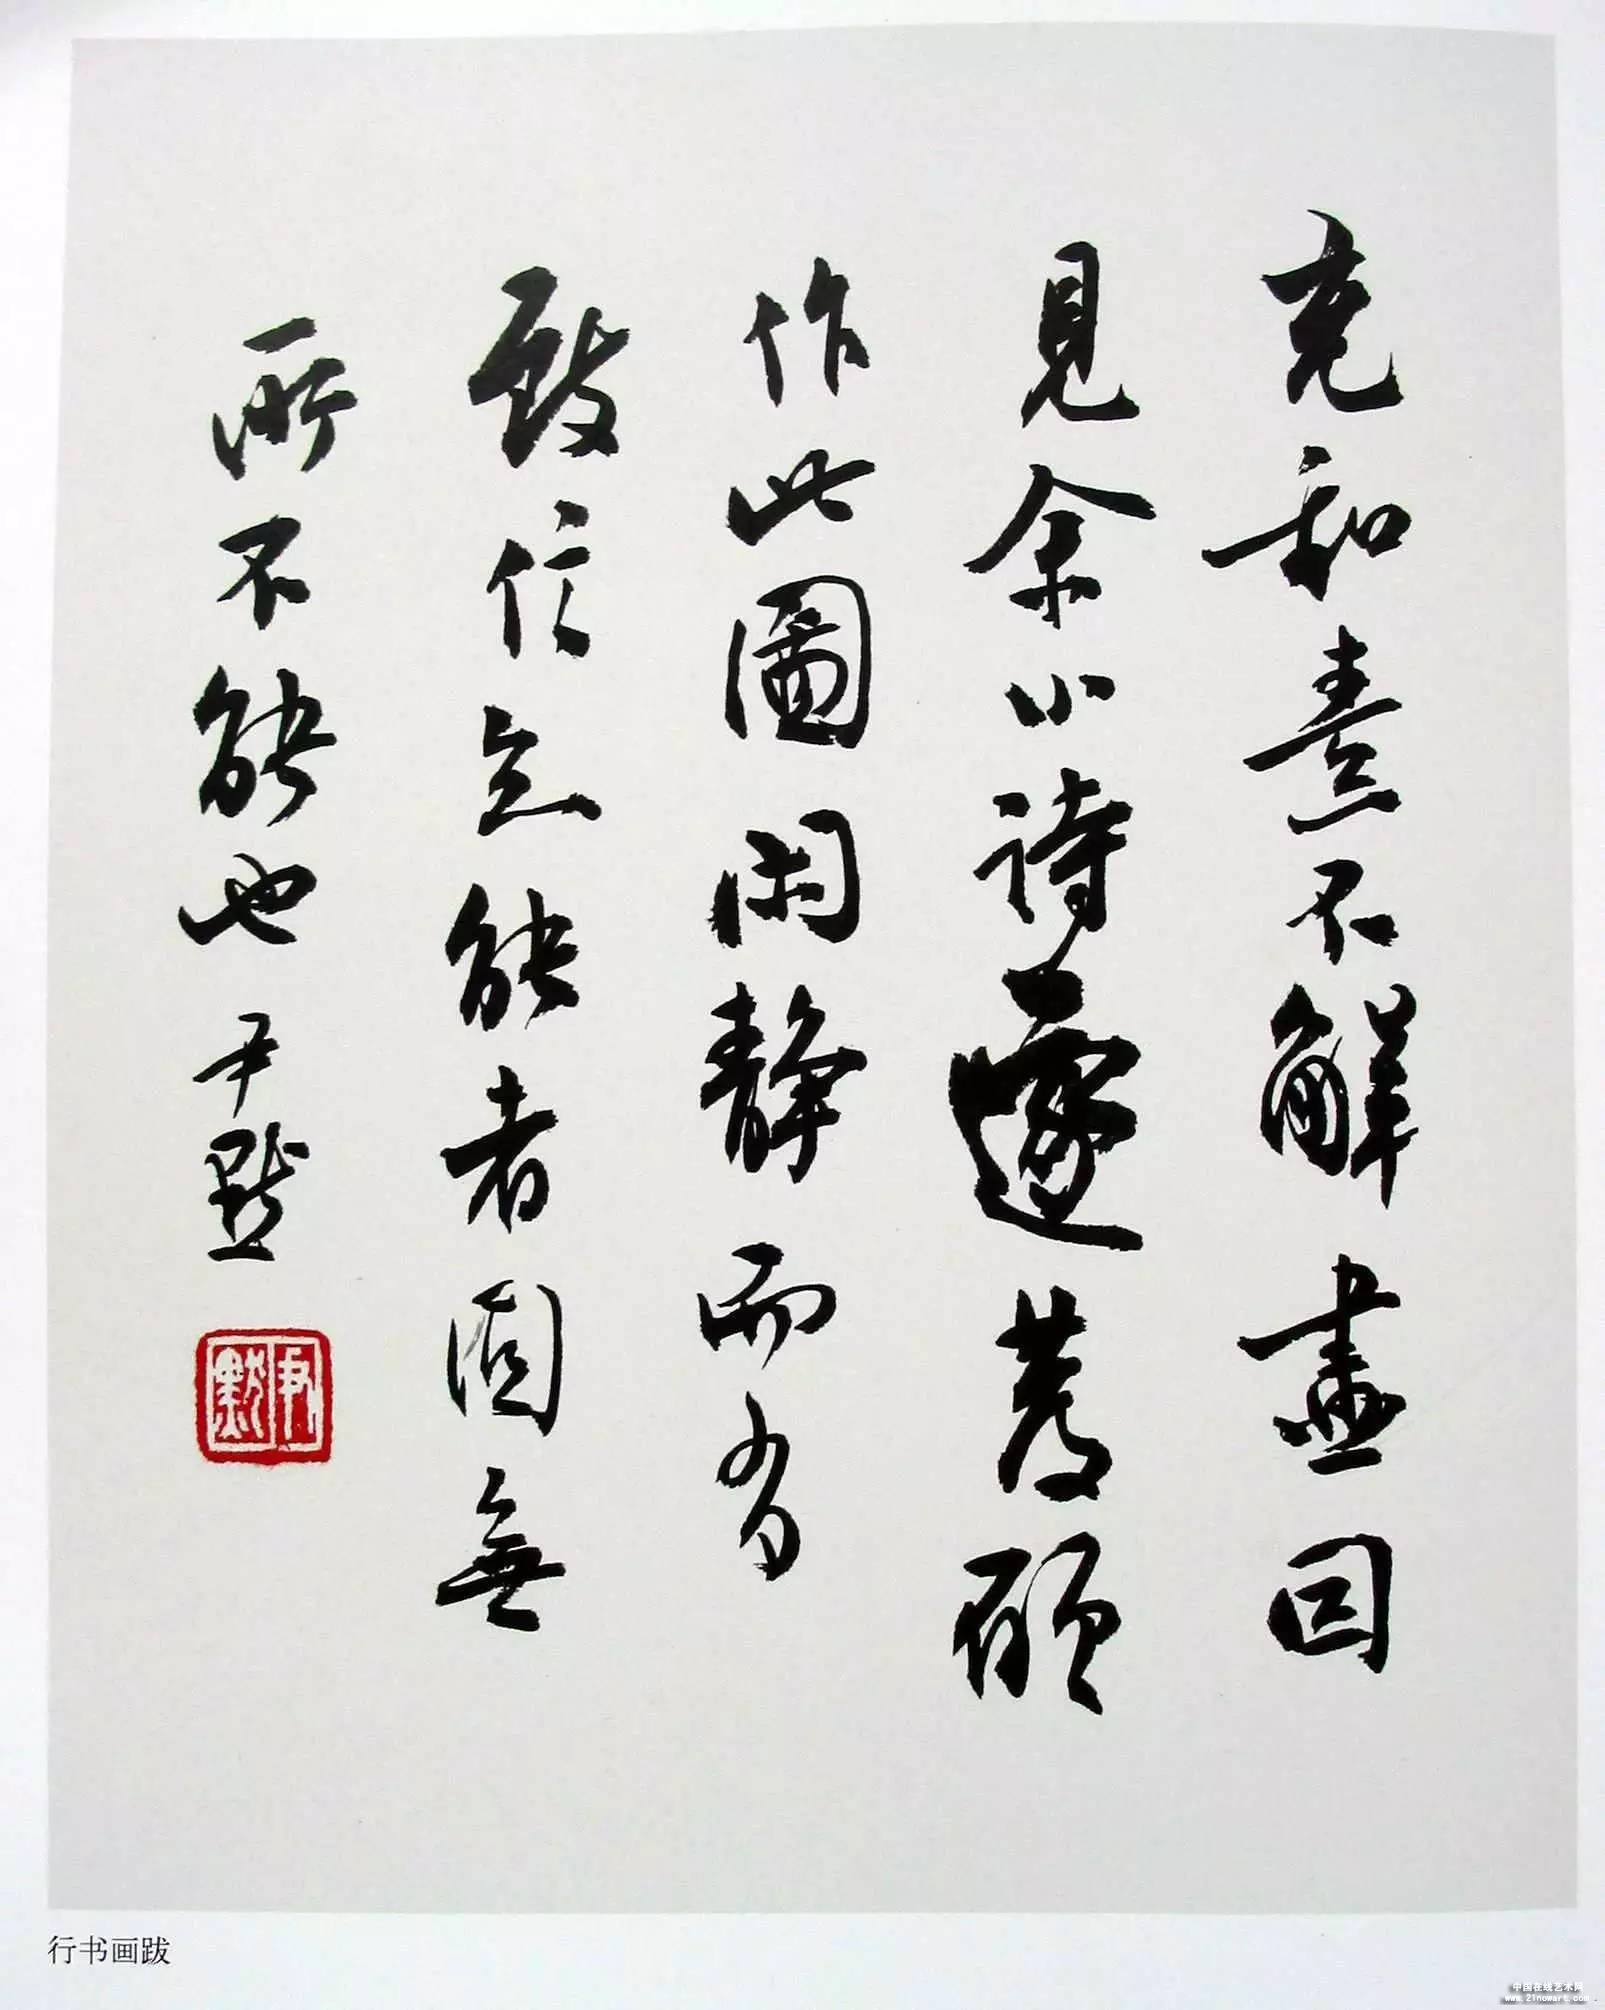 充和素不解畫因
見余小詩遂發願
作此圖閑静而有
致信知能者固無
所不能也尹默
尹默
行书画跋
中国在线艺术网
www.21nowart.com